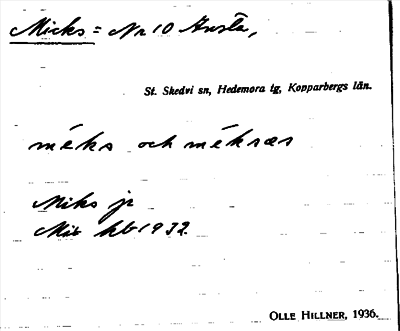 Micks = Nr 10 Knsta,
St. Skedvi sn, Hedemora tg, Kopparbergs län.
méks och méksas
Miks jr
Mik kb 1932.
OLLE HILLNER, 1936.